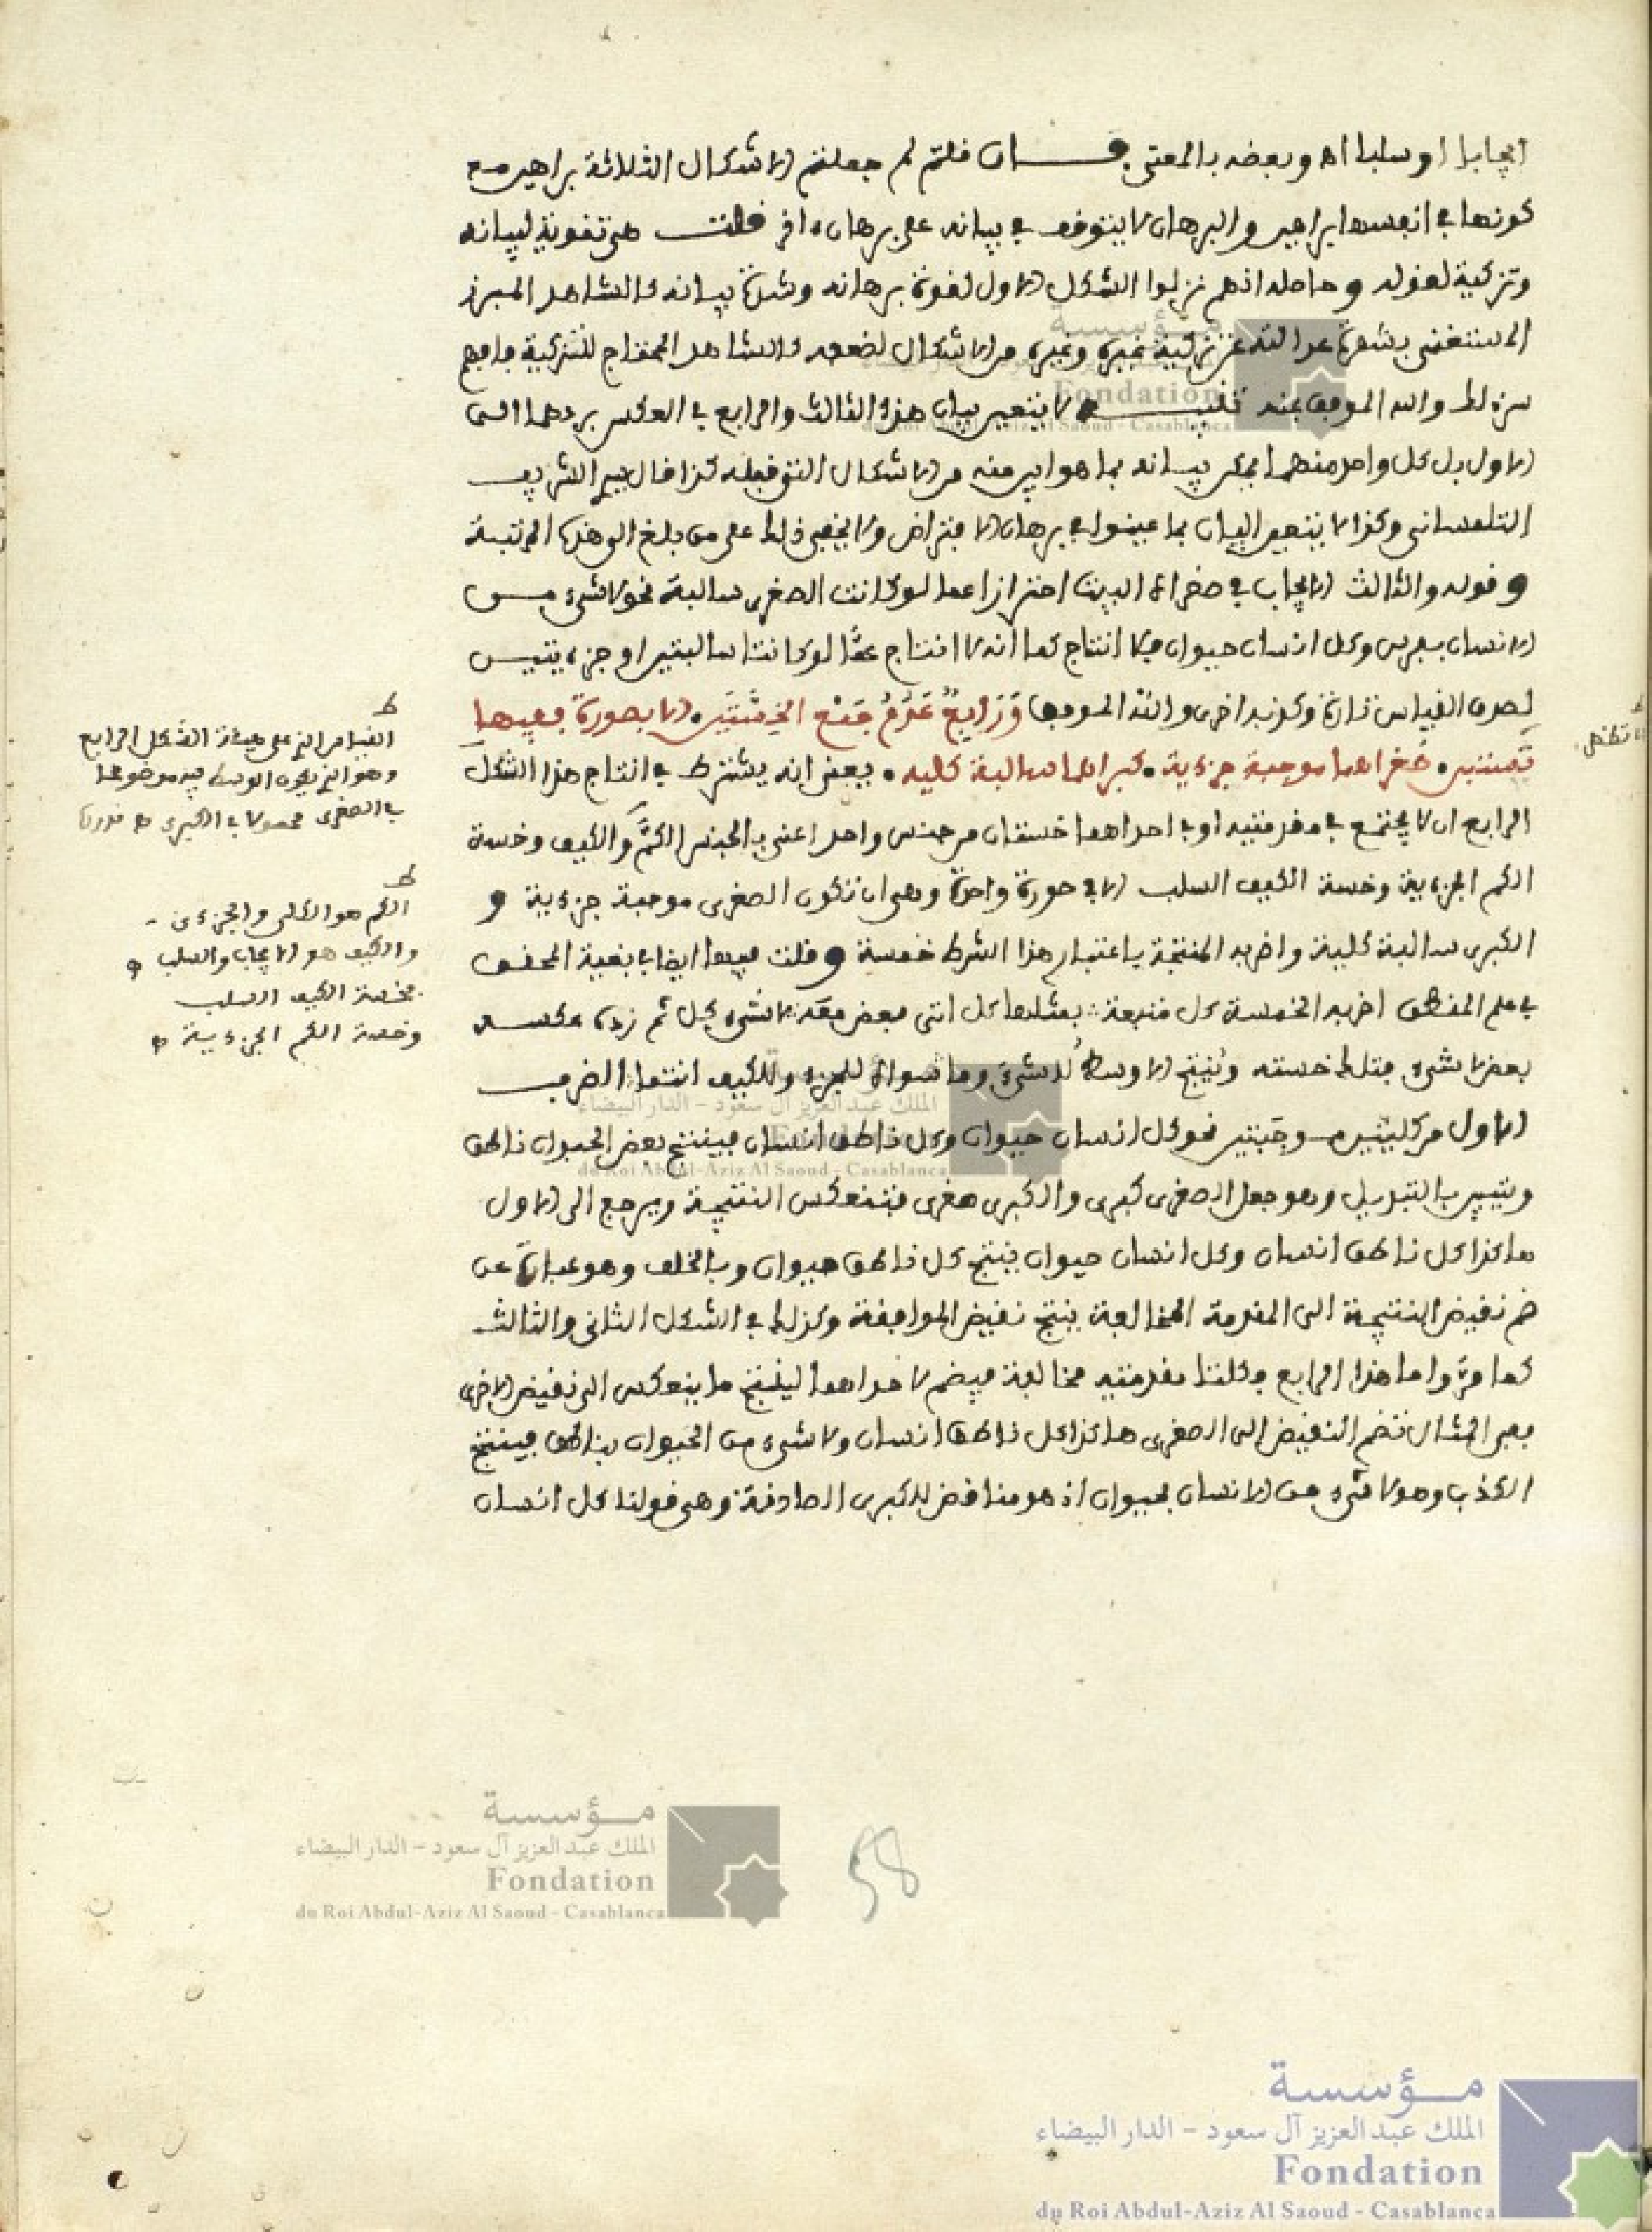 ايجابا او سلبا اه وبعضه بالمعنى فان قلتم لم جعلتم الاشكال الثلاثة براهين مع
كونها في انفسها براهين والبرهان لا يتوقف في بيانه على برهان اخر قلت هي تقوية لبيانه
وتزكية لقوله وحاصله انهم نزلوا الشكل الاول لقوة برهانه وشدة بيانه كالشاهد المبرز
المستغنى بشهرة عدالته عن تزكية غيره وغيره من الاشكال لضعفه كالشاهد المحتاج للتزكية فافهم
ذلك والله الموفق بمنه تنبيه لا يتعين بيان هذا الثالث والرابع في العكس بردهما الى
الاول بل كل واحد منهما يمكن بيانه بما هو ابين منه من الاشكال التي قبله كذا قال الشريف
التلمساني وكذا لا يتعين البيان بما عينوا في برهان الافتراض ولا يخفى ذلك على من بلغ الى هذه المرتبة
وقوله والثالث الايجاب في صغراه البيت احترازا عما لو كانت الصغرى سالبة نحو لا شيء من
الانسان بفرس وكل انسان حيوان فلا انتاج كما انه لا انتاج عما لو كانتا سالبتين او جزءيتين
لصدق القياس تارة وكذبه اخرى والله الموفق ورابع عدم جمع الخستين الا بصورة ففيها
تستبين صغراهما موجبة جزءية كبراهما سالبة كليه يعني انه يشترط في انتاج هذا الشكل
الرابع ان لا يجتمع في مقدمتيه او في احداهما خستان من جنس واحد اعني بالجنس الكم والكيف وخسة
الكم الجزءية وخسة الكيف السلب الا في صورة واحدة وهي ان تكون الصغرى موجبة جزءية و
الكبرى سالبة كلية واضربه المنتجة باعتبار هذا الشرط خمسة وقلت فيها ايضا في بغية المحقق
في علم المنطق اضربه الخمسة كل متبعة بمثلها كل انتى فبعض معه لا شيء كل ثم زده عكسه
بعض لا شيء فتلك خمسته وينتج الاوسط لا شيء وما سواه للجزء وللكيف انتما الضرب
الاول من كليتين موجبتين نحو كل انسان حيوان وكل ناطق انسان فينتج بعض الحيوان ناطق
ويتبين بالتبديل وهو جعل الصغرى كبرى والكبرى صغرى فتنعكس النتيجة ويرجع الى الاول
هاكذا كل ناطق انسان وكل انسان حيوان ينتج كل ناطق حيوان وبالخلف وهو عبارة عن
ضم نقيض النتيجة الى المقدمة المخالفة ينتج نقيض الموافقة وكذلك في الشكل الثاني والثالث
كما مر واما هذا الرابع فكلتا مقدمتيه مخالفة فيضم لاحداهما لينتج ما ينعكس الى نقيض الاخرى
ففي المثال تضم النقيض الى الصغرى هاكذا كل ناطق انسان ولا شيء من الحيوان بناطق فينتج
الكذب وهو لا شيء من الانسان بحيوان اذ هو مناقض للكبرى الصادقة وهي قولنا كل انسان
ط
القياس الذي على هيئة الشكل الرابع
وهو الذي يكون الوسط فيه موضوعا
في الصغرى محمولا في الكبرى
ط
الكم هو الكلي والجزءي
والكيف هو الايجاب والسلب و
فخسة الكيف السلب
وخسة الكم الجزءية
58
مؤسسة
الملك عبد العزيز آل سعود - الدار البيضاء
Fondation
du Roi Abdul-Aziz Al Saoud - Casablanca
مؤسسة
الملك عبد العزيز آل سعود - الدار البيضاء
Fondation
du Roi Abdul-Aziz Al Saoud - Casablanca